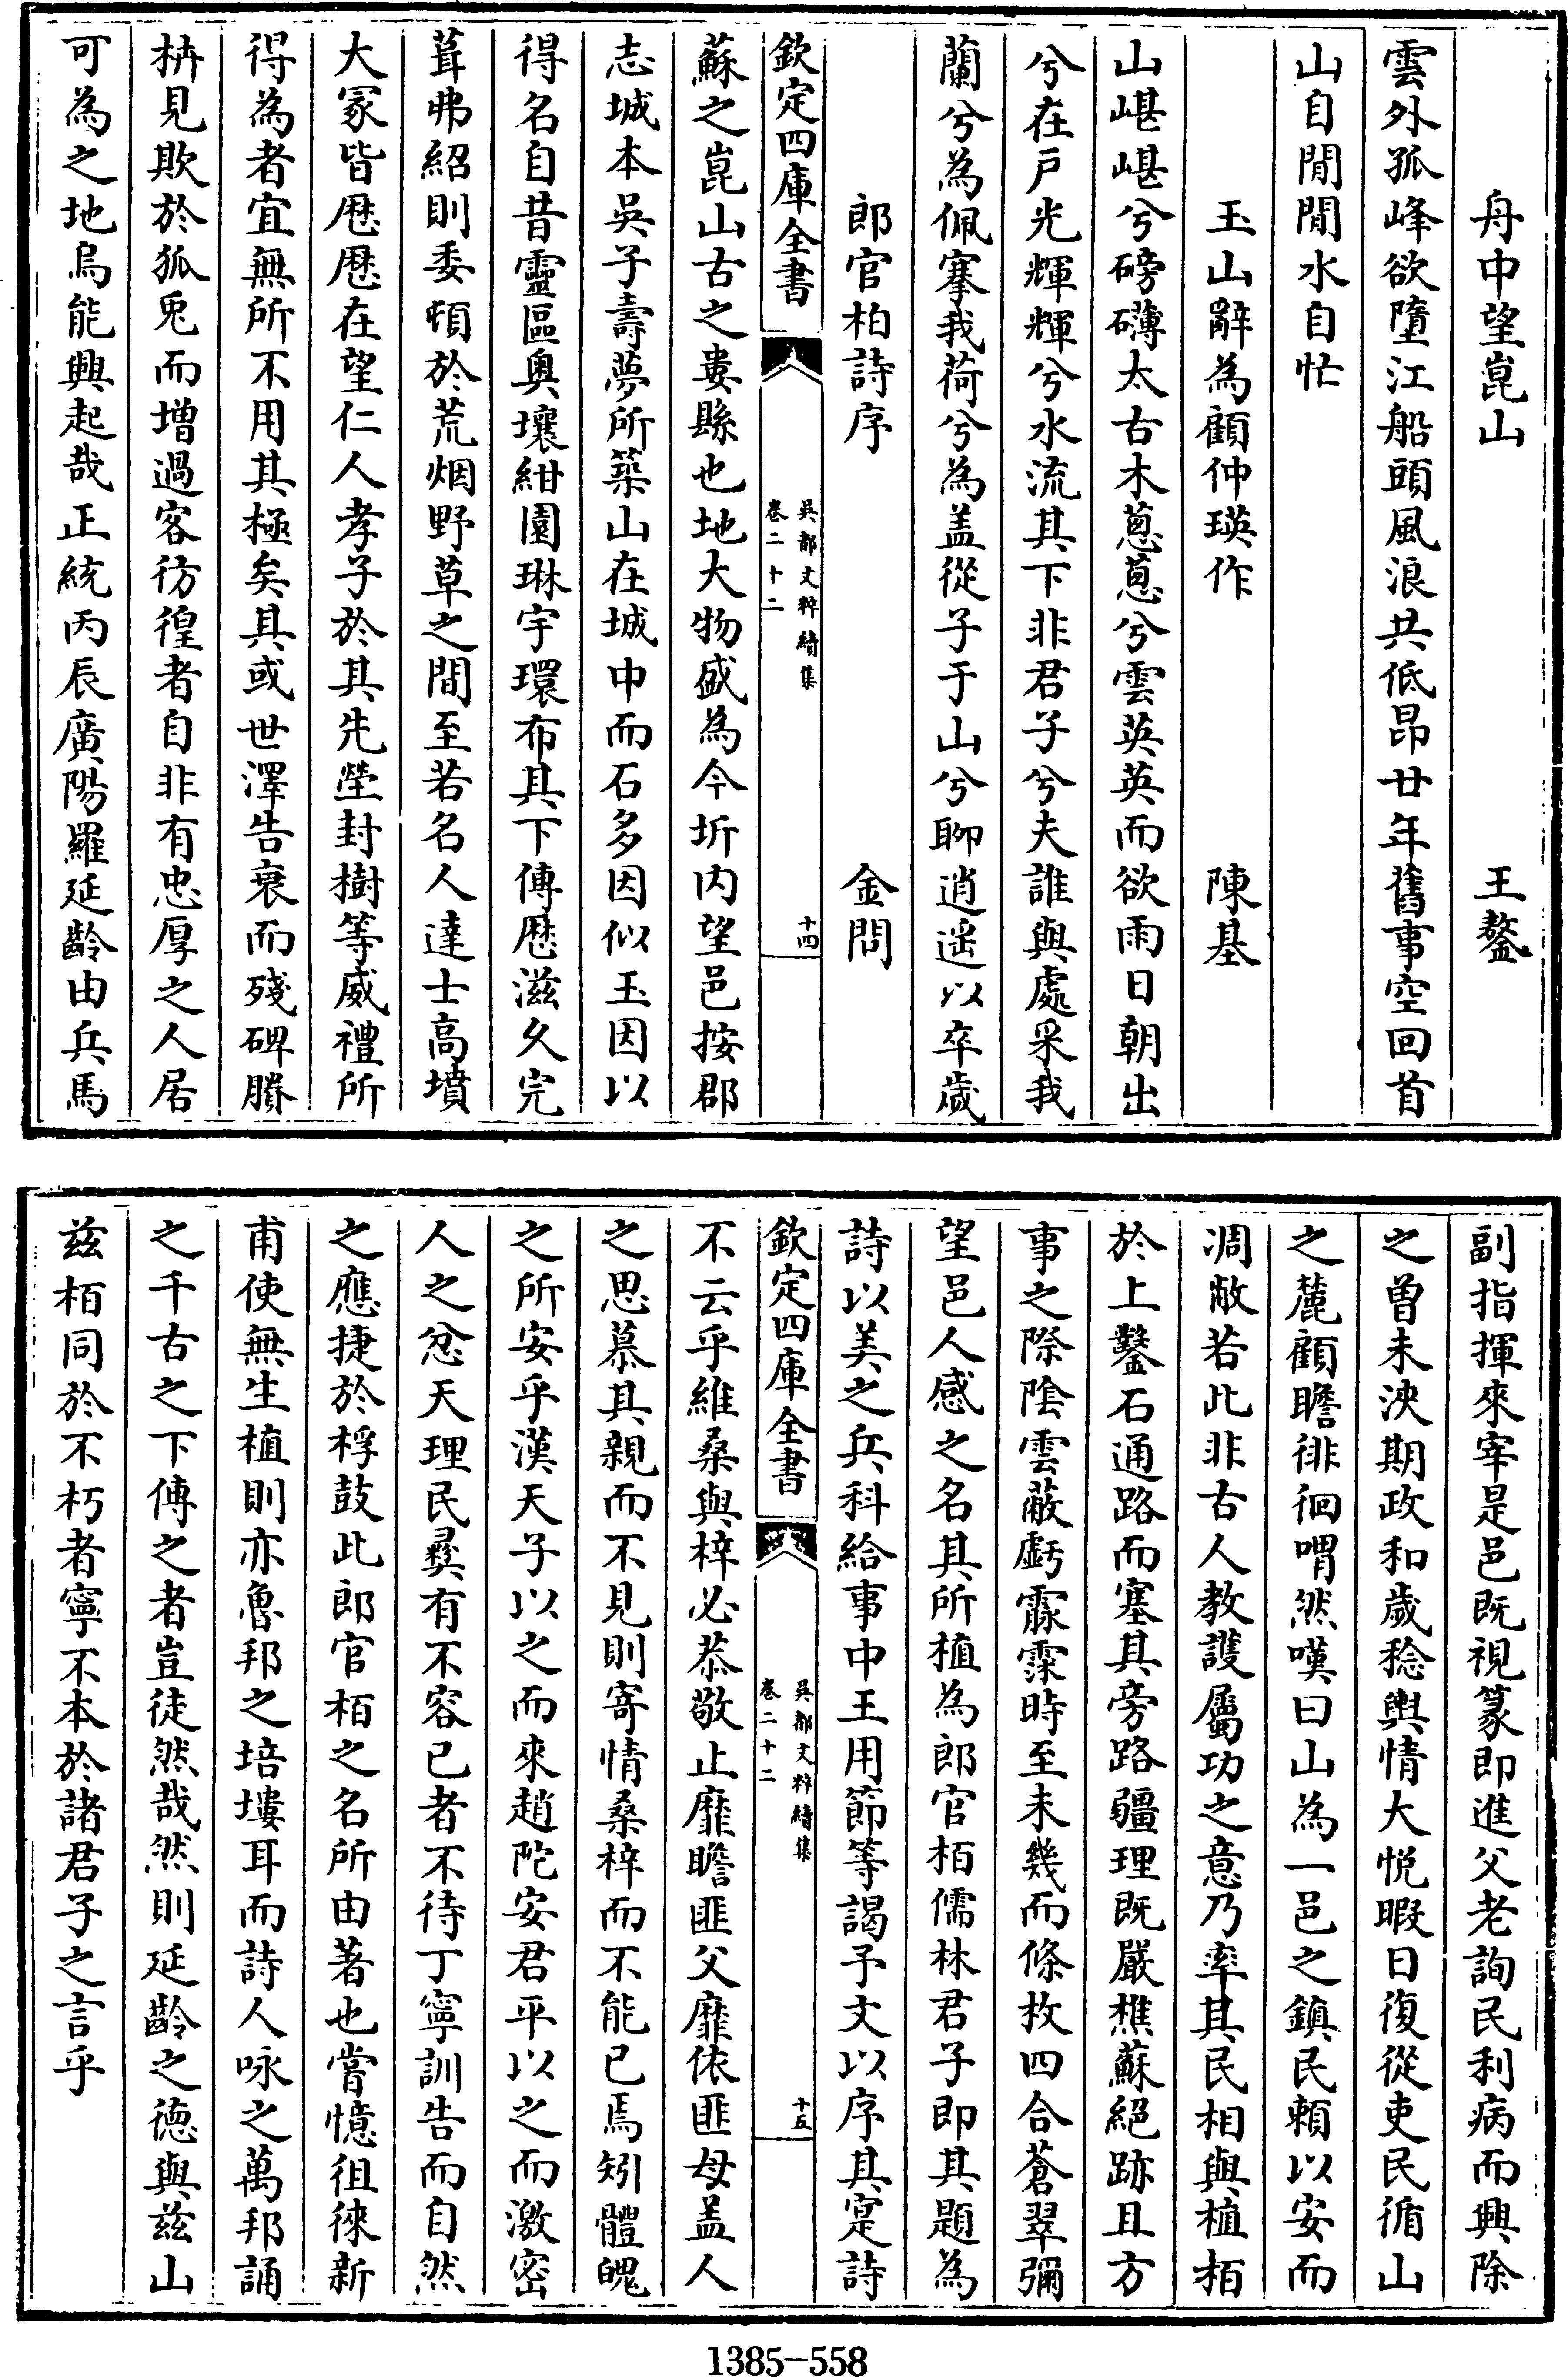 舟中望崑山　王鏊
雲外孤峰欲墮江船頭風浪共低昂廿年舊事空回首
山自閒閒水自忙
玉山辭為顧仲瑛作　陳基
山嵁嵁兮磅礴太古木蔥蔥兮雲英英而欲雨日朝出
兮在戶光輝輝兮水流其下非君子兮夫誰與處采我
蘭兮為佩搴我荷兮為盖從子于山兮聊逍遥以卒歲
郎官柏詩序　金問
欽定四庫全書
吳都文粹續集
卷二十二
十四
蘇之崑山古之婁縣也地大物盛為今圻内望邑按郡
志城本吳子壽夢所築山在城中而石多因似玉因以
得名自昔靈區奥壤紺園琳宇環布其下傳厯滋久完
葺弗紹則委頓於荒烟野草之間至若名人達士高墳
大冢皆厯厯在望仁人孝子於其先塋封樹等威禮所
得為者宜無所不用其極矣其或世澤告衰而殘碑賸
枿見欺於狐兎而増過客彷徨者自非有忠厚之人居
可為之地烏能興起哉正統丙辰廣陽羅延齡由兵馬
副指揮來宰是邑既視篆即進父老詢民利病而興除
之曽未浹期政和歲稔輿情大悅暇日復從吏民循山
之麓顧瞻徘徊喟然嘆曰山為一邑之鎮民賴以安而
凋敝若此非古人教護屬功之意乃率其民相與植栢
於上鑿石通路而塞其旁路疆理既嚴樵蘇絕跡且方
事之際陰雲蔽虧霢霂時至未幾而條枚四合蒼翠彌
望邑人感之名其所植為郎官栢儒林君子即其題為
詩以美之兵科給事中王用節等謁予文以序其寔詩
欽定四庫全書
吳都文粹續集
卷二十二
十五
不云乎維桑與梓必恭敬止靡瞻匪父靡依匪母盖人
之思慕其親而不見則寄情桑梓而不能已焉矧體魄
之所安乎漢天子以之而來趙陀安君平以之而激密
人之忿天理民彞有不容已者不待丁寧訓告而自然
之應捷於桴鼓此郎官栢之名所由著也嘗憶徂徠新
甫使無生植則亦魯邦之培塿耳而詩人咏之萬邦誦
之千古之下傳之者豈徒然哉然則延齡之德與兹山
兹栢同於不朽者寧不本於諸君子之言乎
1385-558